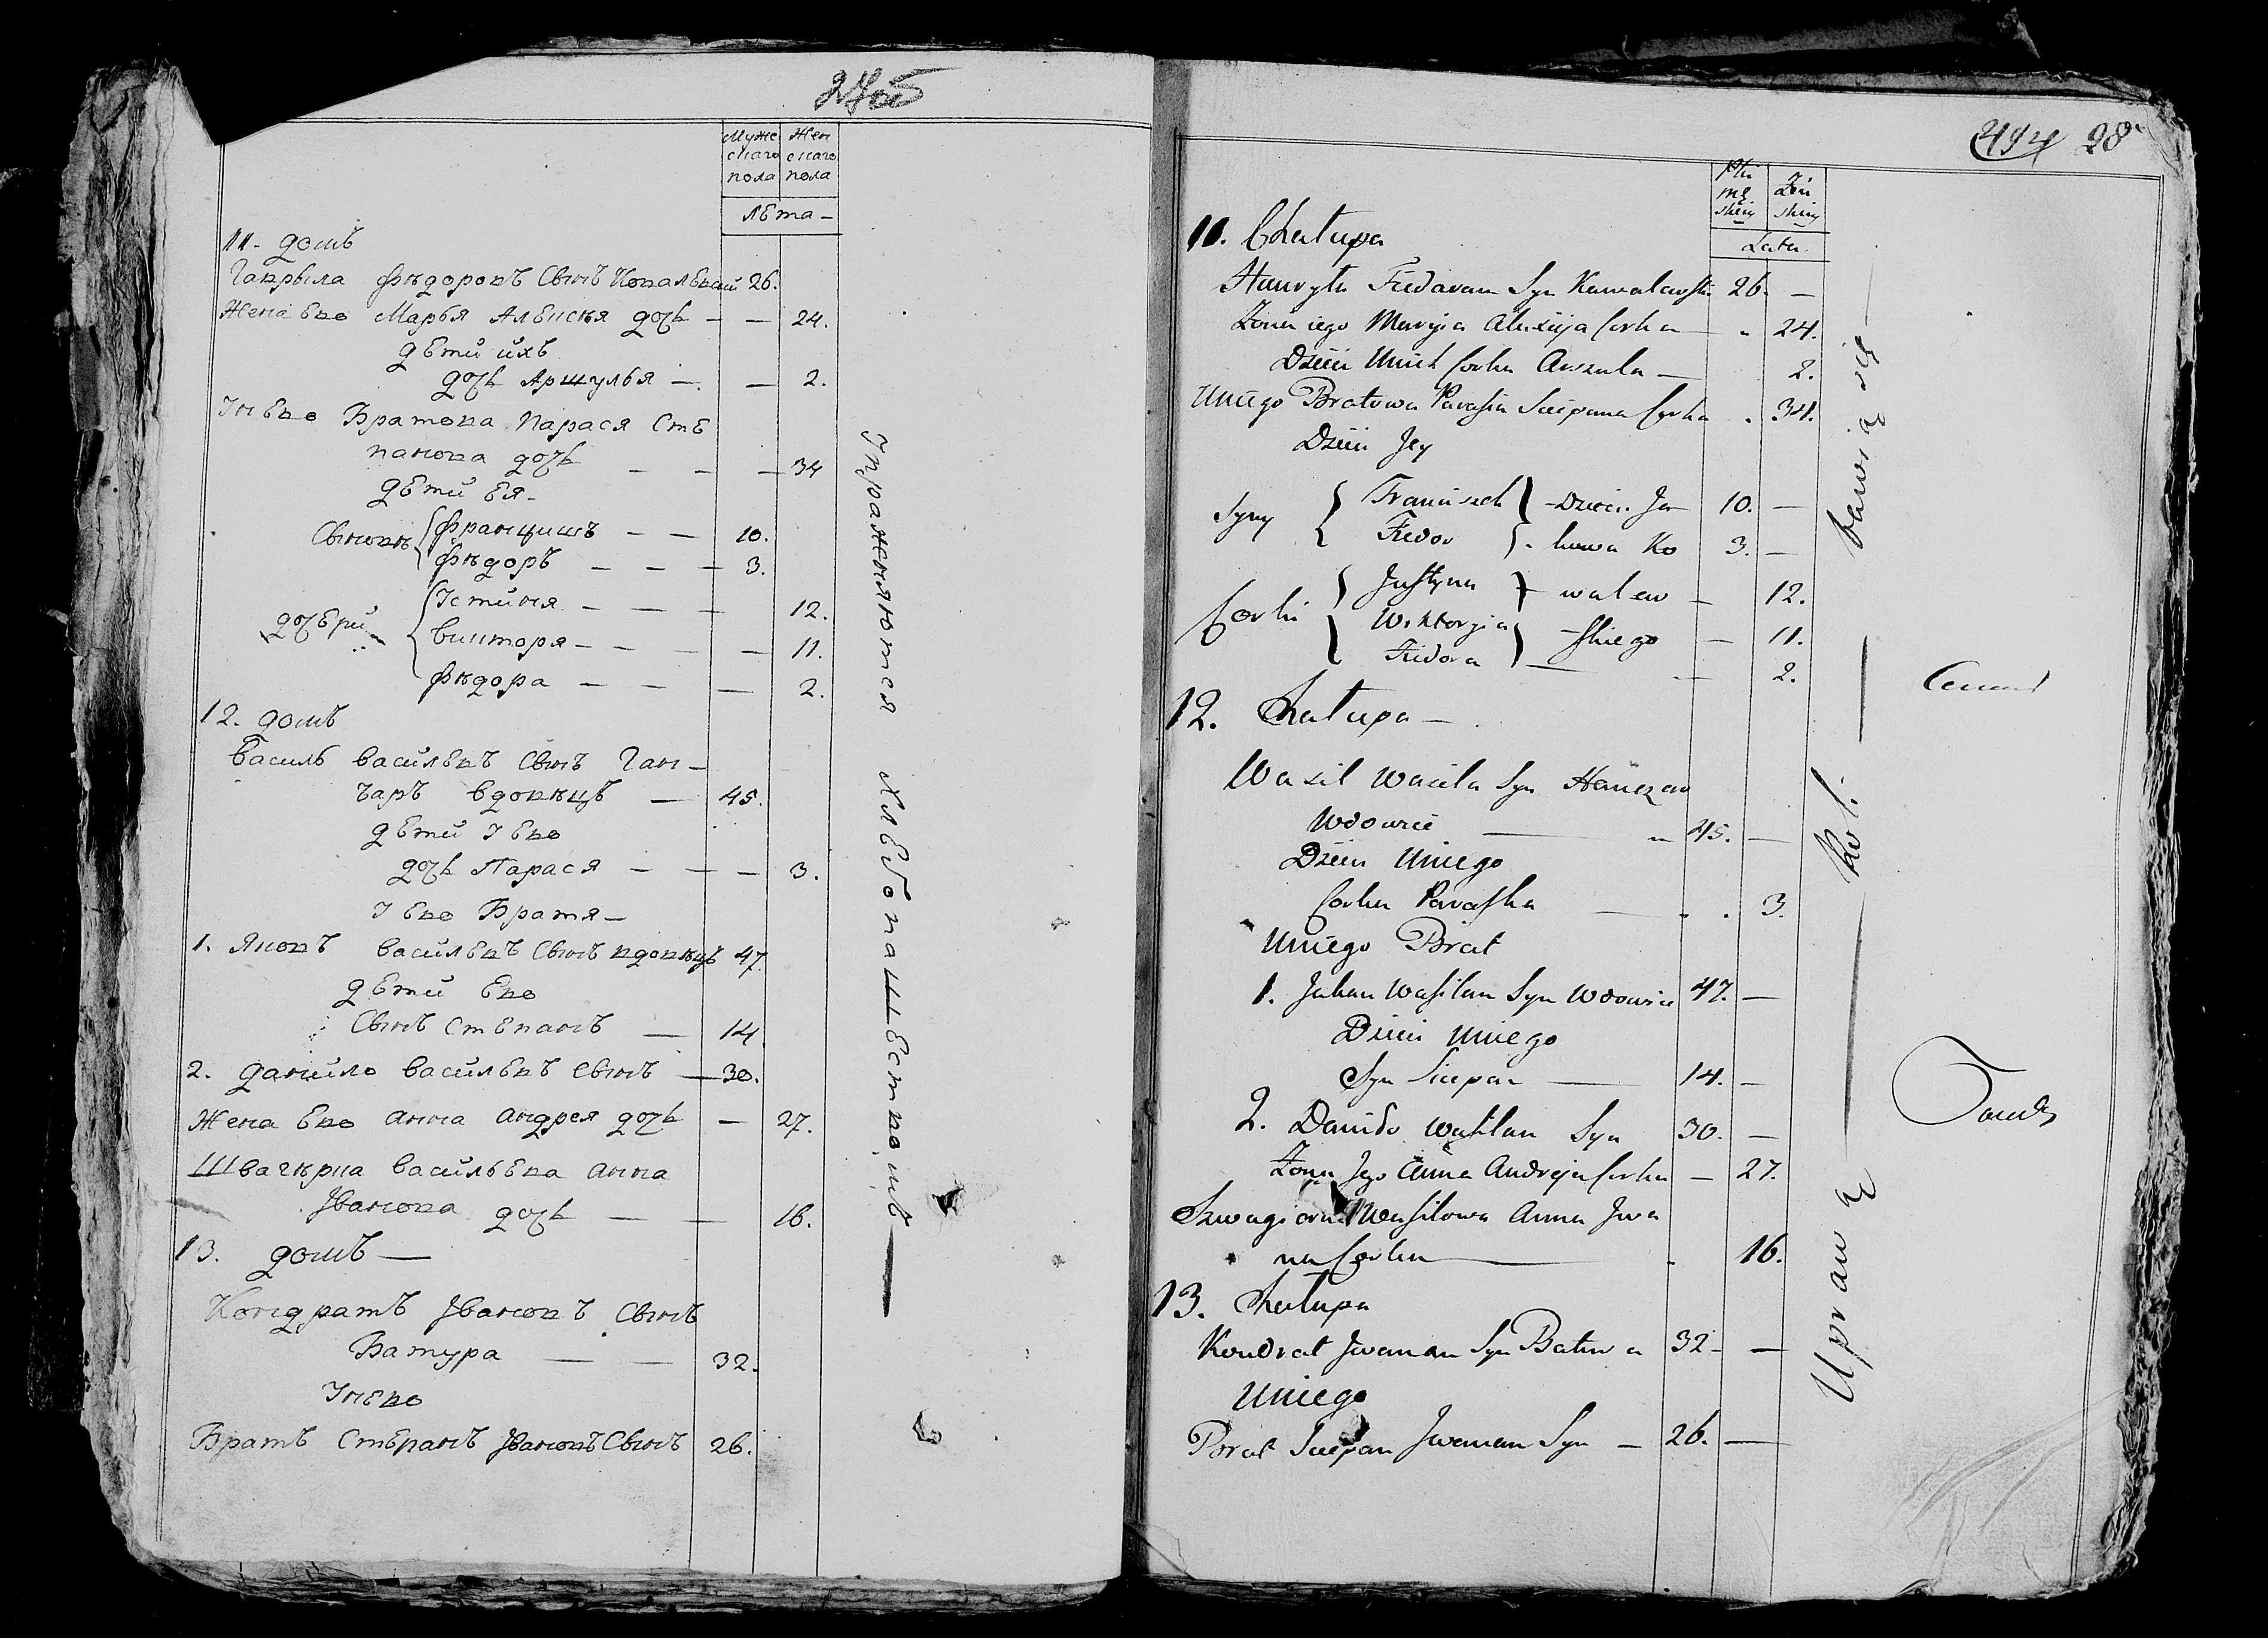 27об
Муже Жен
скаго скаго
пола пола
лѣта —
11. домъ
Гаврыла Фѣдоровъ Сынъ Ковалевский 26.
Жена Ево Марья Алексѣя дочь — — 24.
дети ихъ
дочь Аршулья — — 2.
У Нево Братова Парася Сте
панова дочь — — — 34
дети Ея —
Сыновѣ Францишъ — — 10.
Фѣдоръ — — — 3.
дочери Юстиня — — — 12.
Викторя — — — — 11.
Фѣдора — — — 2.
12. домъ
Василь Васильевъ Сынъ Ган —
чаръ вдовѣцъ — 45.
дети У Ево
дочь Парася — — — 3.
У Ево Братя —
1. Яковъ Васильевъ Сынъ вдовѣцъ 47.
дети Ево
Сынъ Степанъ — 14
2. Данило Васильевъ Сынъ — 30.
Жена Ево Анна Андрея дочь — 27.
Швагѣрка Васильева Анна
Иванова дочь — — 16.
13. домъ —
Кондратъ Ивановъ Сынъ
Батура — — 32.
У Нево
Братъ Степанъ Ивановъ Сынъ 26.
Упражняются хлебопашествомъ —
494 28
Płci Żeń
mę skiey
skiey
Lata
10. Chałupa
Hawryła Fiedorow Syn Kowalewski 26. —
Żona iego Maryia Alexieja Corka — " 24.
Dzieci Unich Corka Arszula — 2.
Uniego Bratowa Parasia Sciepana Corka . 34.
Dzieci Jey
Syny Franciszek — Dzieci Ja 10. —
Fiedor - kowa Ko 3. —
Corki Justyna — walew — 12.
Wiktoryia — skiego — 11.
Fiedora — — 2.
12. Chałupa —
Wasil Wasila Syn Hanczar
Wdowiec — " 45. —
Dzieci Uniego
Corka Paraska — . . 3.
Uniego Brat
1. Jakow Wasilow Syn Wdowiec 47. —
Dzieci Uniego
Syn Sciepan — 14. —
2. Daniło Wasilow Syn 30. —
Żona Jego Anna Andreja Corka — 27.
Szwagierka Wasilowa Anna Iwa
na Corka — . 16.
13. Chałupa
Kondrat Iwanow Syn Batura 32 — —
Uniego
Brat Sciepan Iwanow Syn — 26. —
Uprawą — Roli — bawią się —